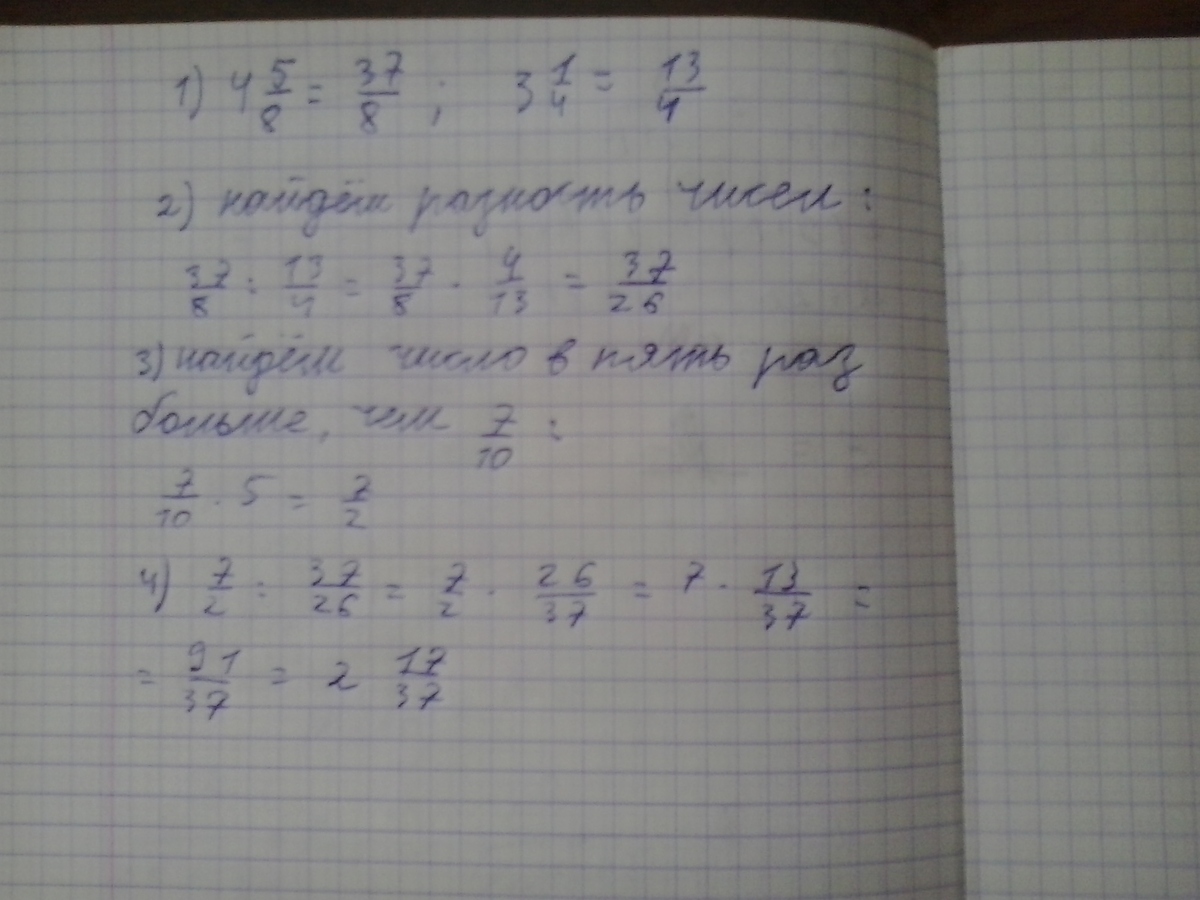 1) 4 5/8 = 37/8 ; 3 1/4 = 13/4
2) найдём разность чисел :
37/8 : 13/4 = 37/8 · 4/13 = 37/26
3) найдём число в пять раз
больше, чем 7/10 :
7/10 · 5 = 7/2
4) 7/2 : 37/26 = 7/2 · 26/37 = 7 · 13/37 =
= 91/37 = 2 17/37